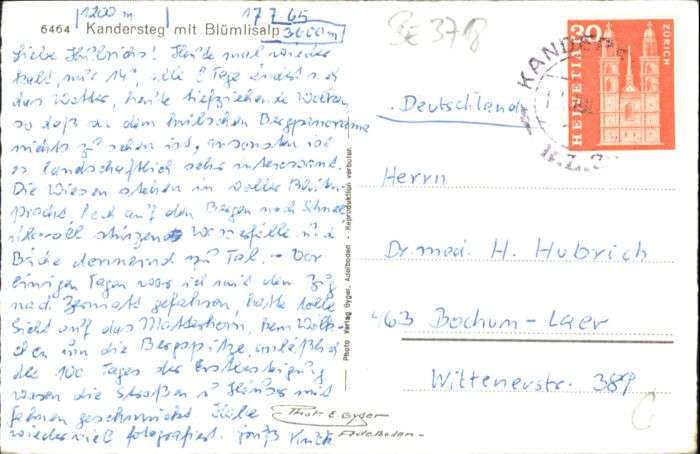 1200 m 17.7.65
6464 Kandersteg mit Blümlisalp 3600 m
Liebe Hubrichs! Heute mal wieder
kalt, nur 14°, alle 2 Tage ändert sich
das Wetter, heute tiefziehende Wolken,
so daß an dem hübschen Bergpanorama
nichts zu sehen ist, ansonsten ist
es landschaftlich sehr interessant.
Die Wiesen stehen in voller Blüten-
pracht, hoch auf den Bergen noch Schnee
überall stürzen Wasserfälle und
Bäche donnernd zu Tal. – Vor
einigen Tagen war ich mit dem Zug
nach Zermatt gefahren, hatte tolle
Sicht auf das Matterhorn, kein Wölk-
chen um die Bergspitze, anläßlich
der 100 Tage der Erstbesteigung
waren die Straßen u. Häuser mit
Fahnen geschmückt. Habe
wieder viel fotografiert. Gruß
Phot. E. Gyger
Adelboden
Photo Verlag Gyger, Adelboden - Reproduktion verboten.
BE 3718
HELVETIA 20
ZÜRICH
KANDERSTEG
Deutschland
Herrn
Dr. med. H. Hubrich
463 Bochum-Laer
Wittenerstr. 389